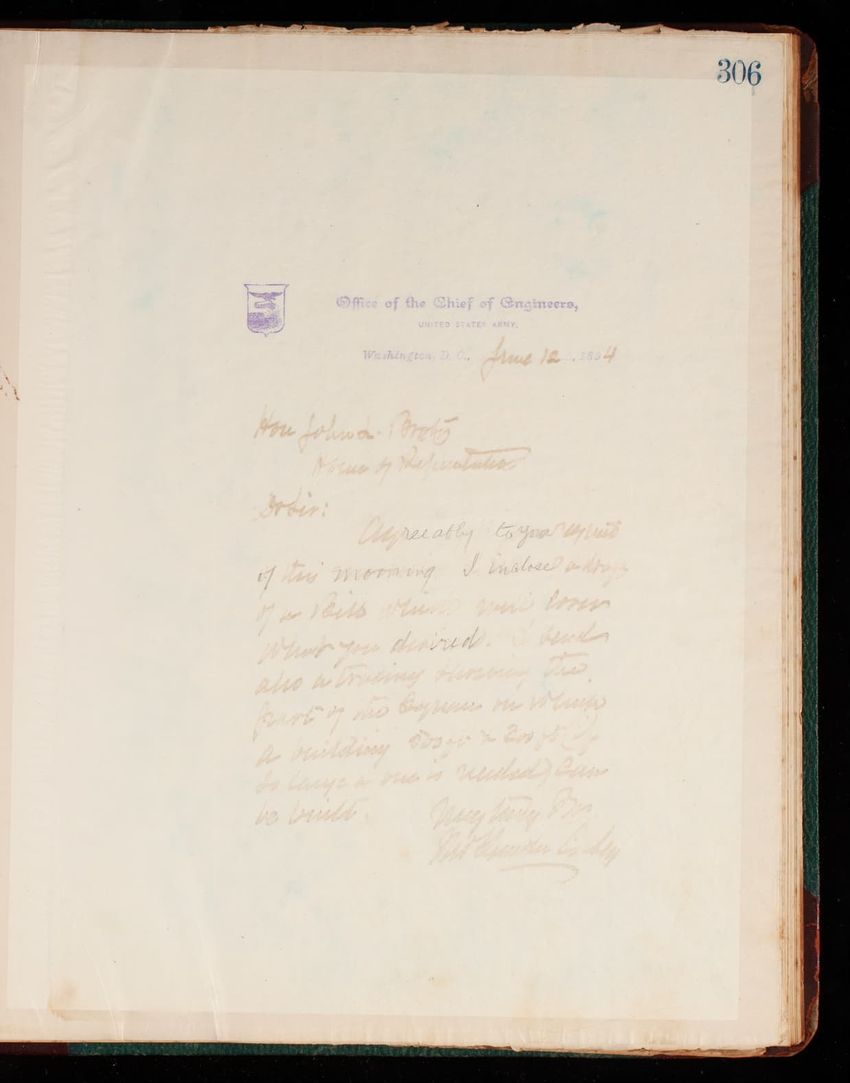 306
Office of the Chief of Engineers,
UNITED STATES ARMY.
Washington, D. C., June 12, 1894
Hon John L.
House of Representatives
Dr Sir:
Agreeably to your request
of this morning I inclose a draft
of a Bill which will cover
what you desired. I send
also a tracing showing the
part of the Square on which
a building 500 ft x 200 ft (if
so large a one is needed) can
be built. Very truly Yrs.
Thos Lincoln Casey